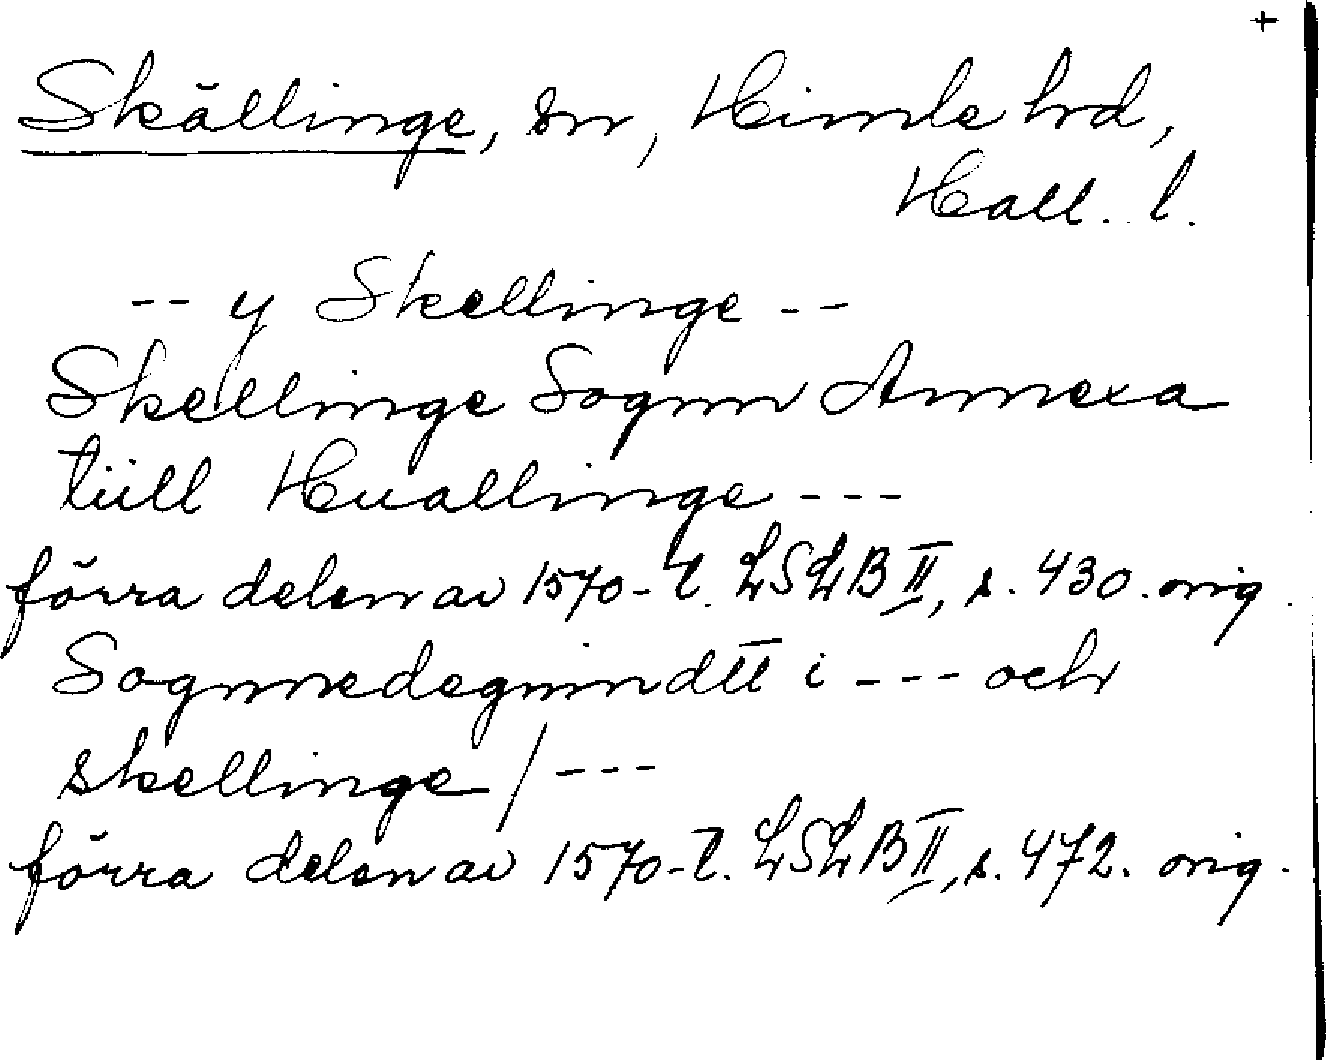 +
Skällinge, sn, Himle hrd,
Hall. l.
-- y Skellinge --
Skellinge Sognn Annexa
tüll Huallinge ---
förra delen av 1570-t. LSLB II, s. 430. orig.
Sognnedegnindtt i --- och
skellinge / ---
förra delen av 1570-t. LSLB II, s. 472. orig.